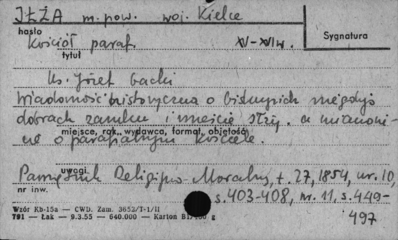 IŁŻA m. pow. woj. Kielce
hasło
Sygnatura
Kościół paraf. XV-XVII w.
tytuł
ks. Józef Gacki
Wiadomość historyczna o biskupich niegdyś
dobrach zamku i mieście Iłży, a mianowi-
cie o parafialnym kościele.
miejsce, rok, wydawca, format, objętość
uwagi
Pamiętnik Religijno-Moralny, t. 27, 1854, nr. 10,
nr inw.
s. 403-408, nr. 11, s. 449-
497
Wzór Kb-15a — CWD. Zam. 3652/T-1/II
791 — Łak — 9.3.55 — 640.000 — Karton B1/180 g